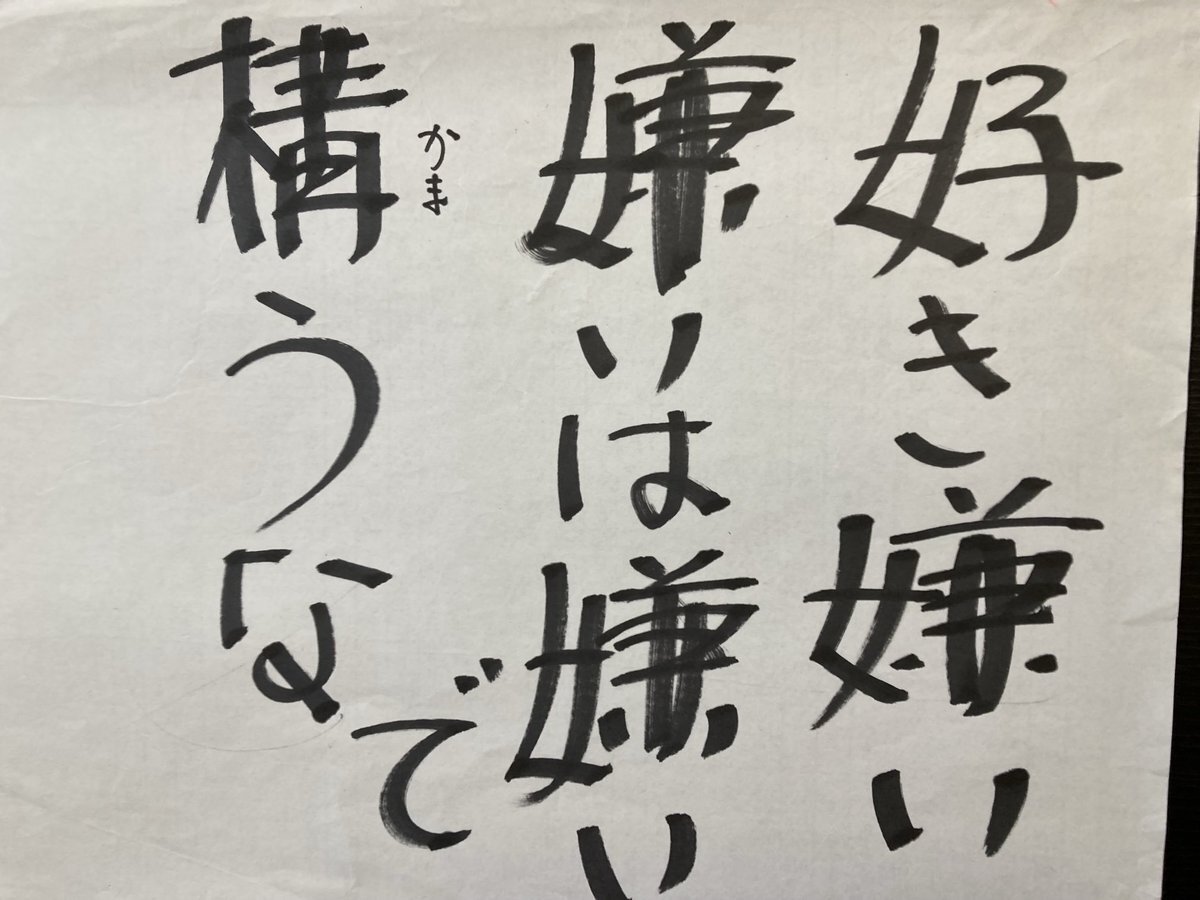 好き嫌い
嫌いは嫌い
で
構うな
かま